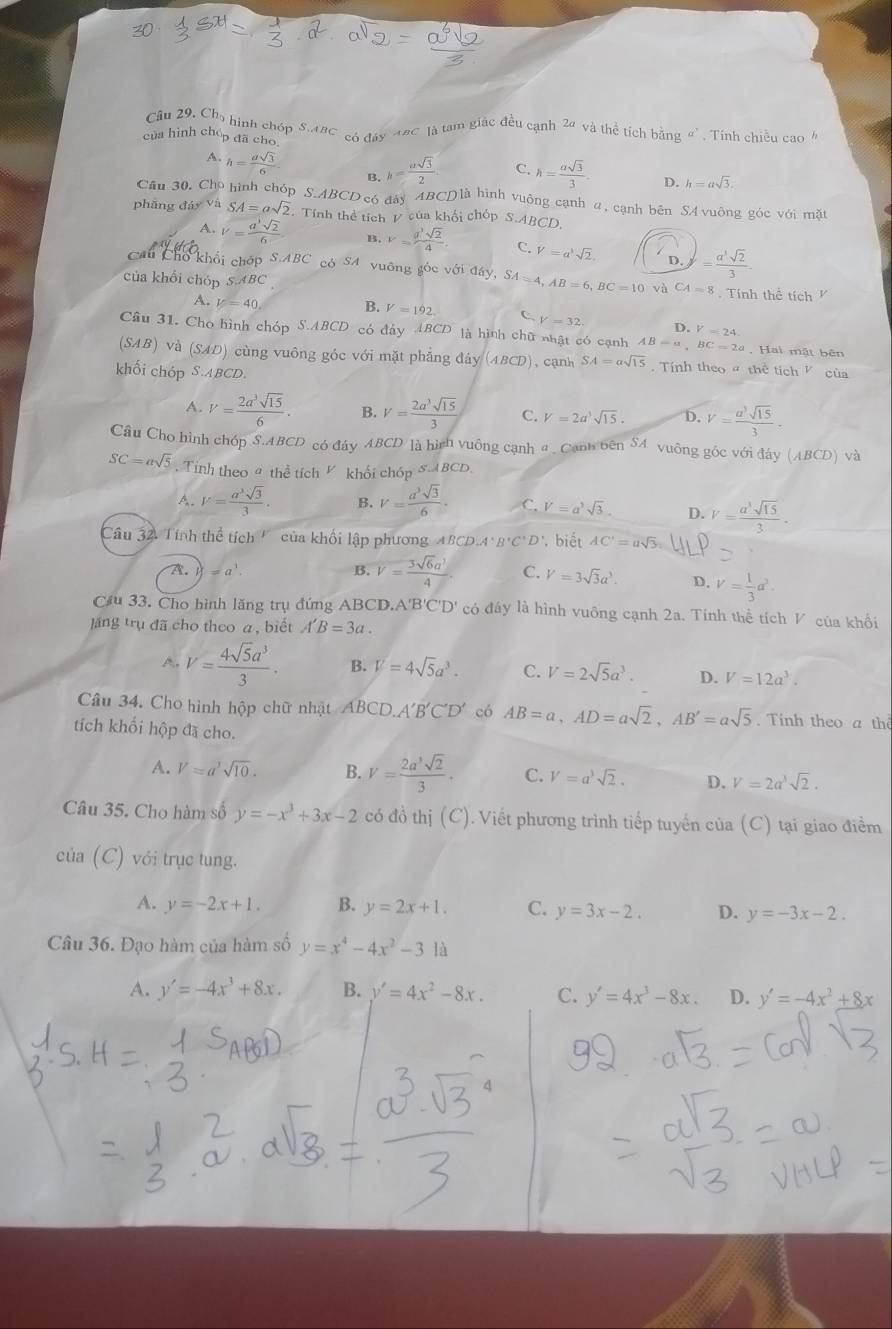 30. 1/3 SH = 1/3 . a². a√2 = a³√2/3
Câu 29. Cho hình chóp S.ABC có đáy ABC là tam giác đều cạnh 2a và thể tích bằng a³. Tính chiều cao h
của hình chóp đã cho.
A. h = a√3/6. B. h = a√3/2. C. h = a√3/3. D. h = a√3.
Câu 30. Cho hình chóp S.ABCD có đáy ABCD là hình vuông cạnh a, cạnh bên SA vuông góc với mặt
phẳng đáy và SA = a√2. Tính thể tích V của khối chóp S.ABCD.
A. V = a³√2/6 B. V = a³√2/4. C. V = a³√2. D. V = a³√2/3.
Câu Cho khối chóp S.ABC có SA vuông góc với đáy, SA = 4, AB = 6, BC = 10 và CA = 8. Tính thể tích V
của khối chóp S.ABC.
A. V = 40. B. V = 192. C. V = 32. D. V = 24.
Câu 31. Cho hình chóp S.ABCD có đáy ABCD là hình chữ nhật có cạnh AB = a, BC = 2a. Hai mặt bên
(SAB) và (SAD) cùng vuông góc với mặt phẳng đáy (ABCD), cạnh SA = a√15. Tính theo a thể tích V của
khối chóp S.ABCD.
A. V = 2a³√15/6. B. V = 2a³√15/3 C. V = 2a³√15. D. V = a³√15/3.
Câu Cho hình chóp S.ABCD có đáy ABCD là hình vuông cạnh a. Cạnh bên SA vuông góc với đáy (ABCD) và
SC = a√5. Tính theo a thể tích V khối chóp S.ABCD.
A. V = a³√3/3. B. V = a³√3/6. C. V = a³√3. D. V = a³√15/3.
Câu 32. Tính thể tích V của khối lập phương ABCD.A'B'C'D', biết AC' = a√3. =
A. V = a³. B. V = 3√6a³/4. C. V = 3√3a³. D. V = 1/3 a³.
Câu 33. Cho hình lăng trụ đứng ABCD.A'B'C'D' có đáy là hình vuông cạnh 2a. Tính thể tích V của khối
lăng trụ đã cho theo a, biết A'B = 3a.
A. V = 4√5a³/3. B. V = 4√5a³. C. V = 2√5a³. D. V = 12a³.
Câu 34. Cho hình hộp chữ nhật ABCD.A'B'C'D' có AB = a, AD = a√2, AB' = a√5. Tính theo a thể
tích khối hộp đã cho.
A. V = a³√10. B. V = 2a³√2/3. C. V = a³√2. D. V = 2a³√2.
Câu 35. Cho hàm số y = -x³ + 3x - 2 có đồ thị (C). Viết phương trình tiếp tuyến của (C) tại giao điểm
của (C) với trục tung.
A. y = -2x + 1. B. y = 2x + 1. C. y = 3x - 2. D. y = -3x - 2.
Câu 36. Đạo hàm của hàm số y = x⁴ - 4x² - 3 là
A. y' = -4x³ + 8x. B. y' = 4x² - 8x. C. y' = 4x³ - 8x. D. y' = -4x² + 8x
1/3 . S.H = 1/3 . S ABCD
= 1/3 . a² . a√3 = a³.√3/3
4
a√3 = √3
= a√3/√3 = a